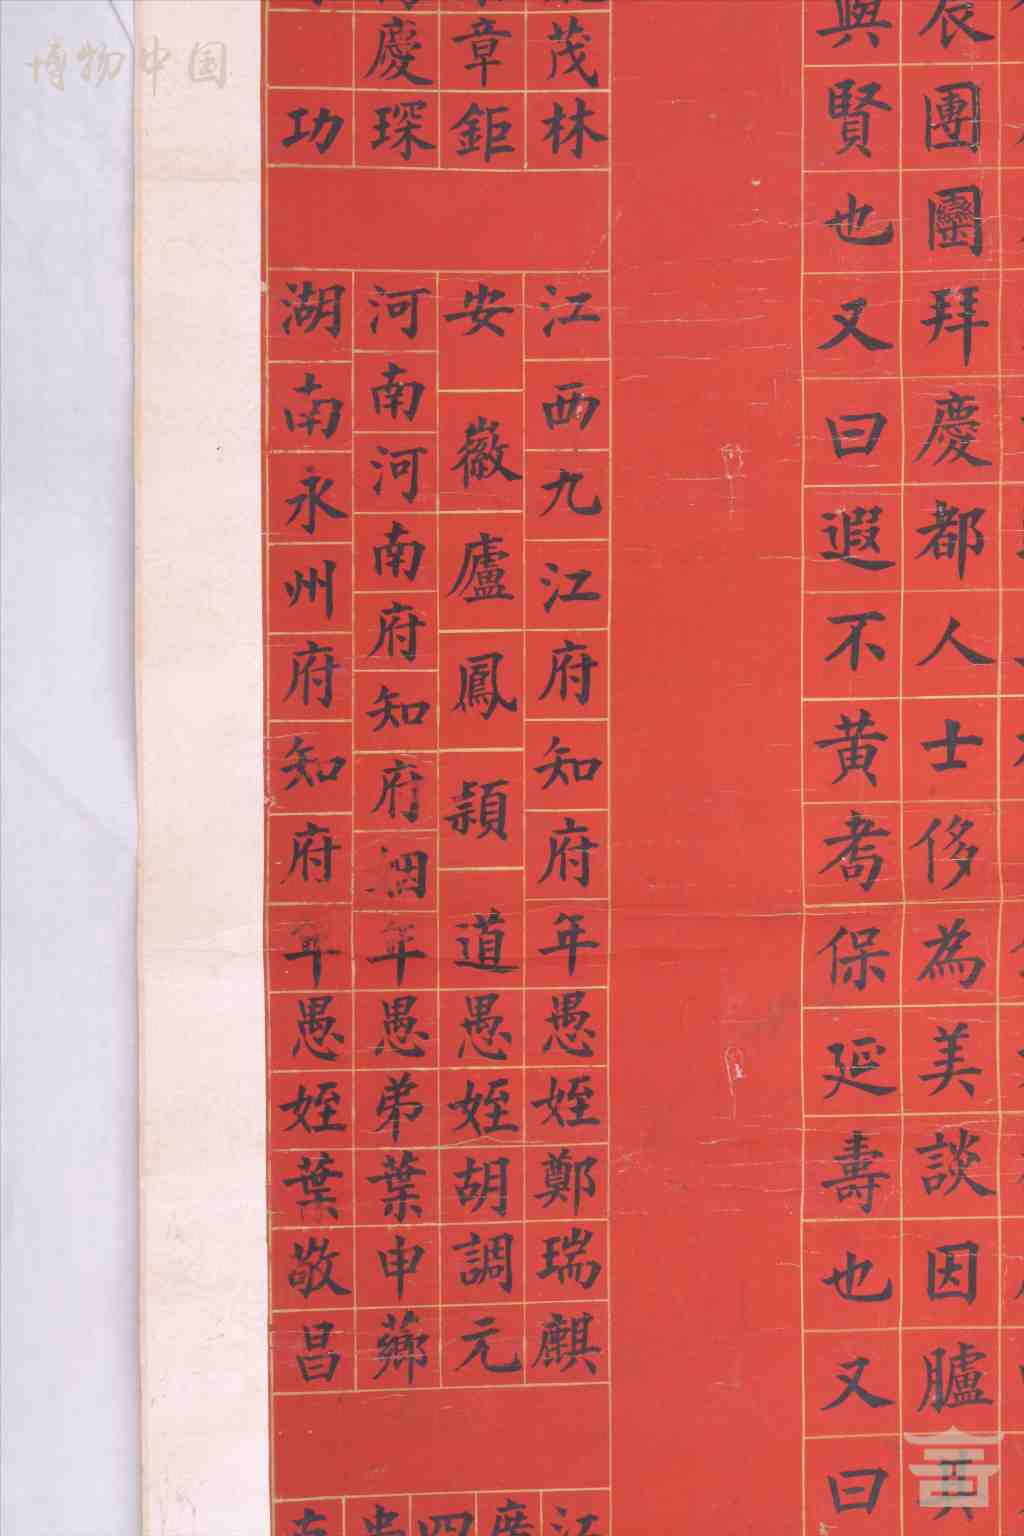 辰團圞拜慶都人士侈為美談因臚其
與賢也又曰遐不黃耇保延壽也又曰
茂林
章鉅
慶琛
功
江西九江府知府年愚姪鄭瑞麒
安徽廬鳳潁道愚姪胡調元
河南河南府知府姻年愚弟葉申薌
湖南永州府知府年愚姪葉敬昌
博物中国